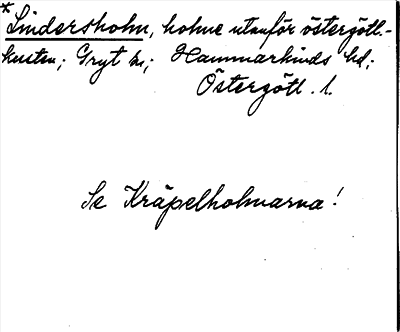 * Lindersholm, holme utanför östergötl.-
kusten; Gryt sn; Hammarkinds hd;
Östergötl. l.
Se Kräpelholmarna!